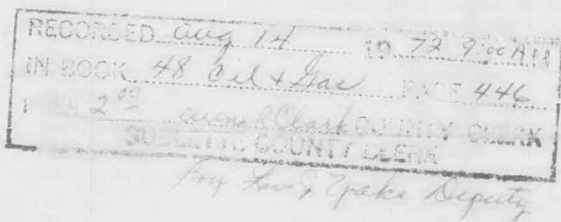 RECORDED Aug 14 19 72 9:00 AM
IN BOOK 48 Oil + Gas PAGE 446
FEES 2 00 Clark COUNTY CLERK
SUBLETTE COUNTY CLERK
By Deputy